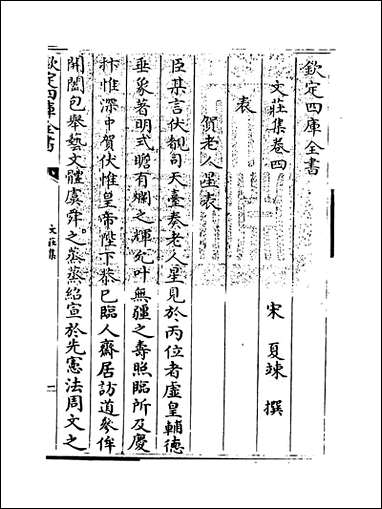 欽定四庫全書
文莊集卷四
宋 夏竦 撰
表
賀老人星表
臣某言伏覩司天臺奏老人星見於丙位者虛皇輔德
垂象著明式瞻有爛之輝允叶無疆之壽照臨所及慶
抃惟深中賀伏惟皇帝陛下恭己臨人齋居訪道參侔
開闔包舉藝文體虞舜之烝烝紹宣於先憲法周文之
欽定四庫全書
文莊集
一